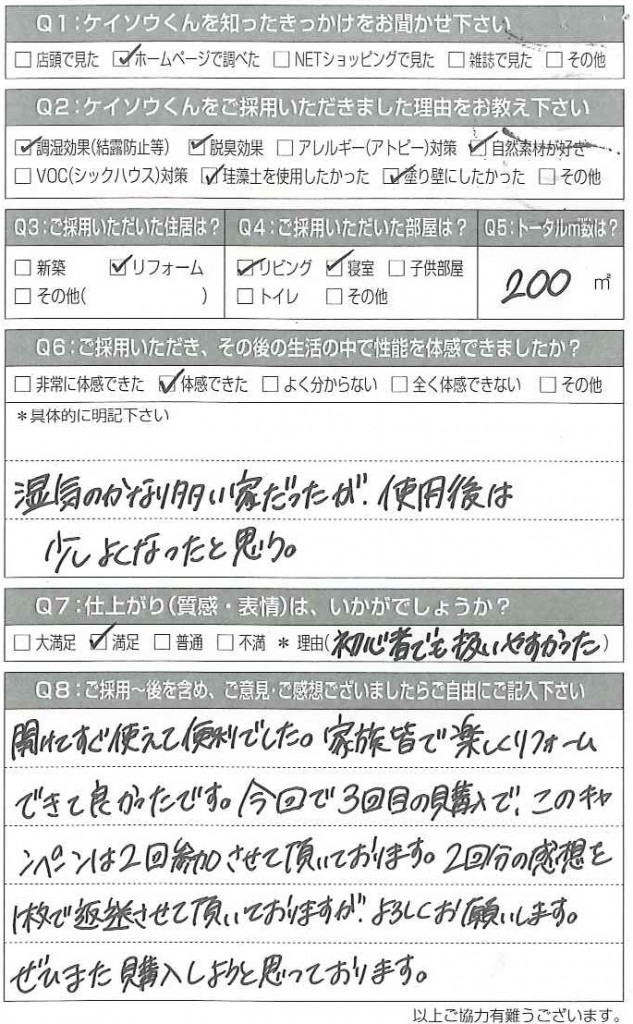 Q1：ケイソウくんを知ったきっかけをお聞かせ下さい
□店頭で見た ☑ホームページで調べた □NETショッピングで見た □雑誌で見た □その他
Q2：ケイソウくんをご採用いただきました理由をお教え下さい
☑調湿効果(結露防止等) ☑脱臭効果 □アレルギー(アトピー)対策 ☑自然素材が好き
□VOC(シックハウス)対策 ☑珪藻土を使用したかった ☑塗り壁にしたかった □その他
Q3：ご採用いただいた住居は？ Q4：ご採用いただいた部屋は？ Q5：トータル㎡数は？
□新築 ☑リフォーム ☑リビング ☑寝室 □子供部屋 200 ㎡
□その他( ) □トイレ □その他
Q6：ご採用いただき、その後の生活の中で性能を体感できましたか？
□非常に体感できた ☑体感できた □よく分からない □全く体感できない □その他
＊具体的に明記下さい
湿気のかなり多い家だったが、使用後は
少しよくなったと思う。
Q7：仕上がり(質感・表情)は、いかがでしょうか？
□大満足 ☑満足 □普通 □不満 ＊理由(初心者でも扱いやすかった)
Q8：ご採用～後を含め、ご意見・ご感想ございましたらご自由にご記入下さい
開けてすぐ使えて便利でした。家族皆で楽しくリフォーム
できて良かったです。今回で3回目の購入で、このキャ
ンペーンは2回参加させて頂いております。2回分の感想を
1枚で返送させて頂いておりますが、よろしくお願いします。
ぜひまた購入しようと思っております。
以上ご協力有難うございます。